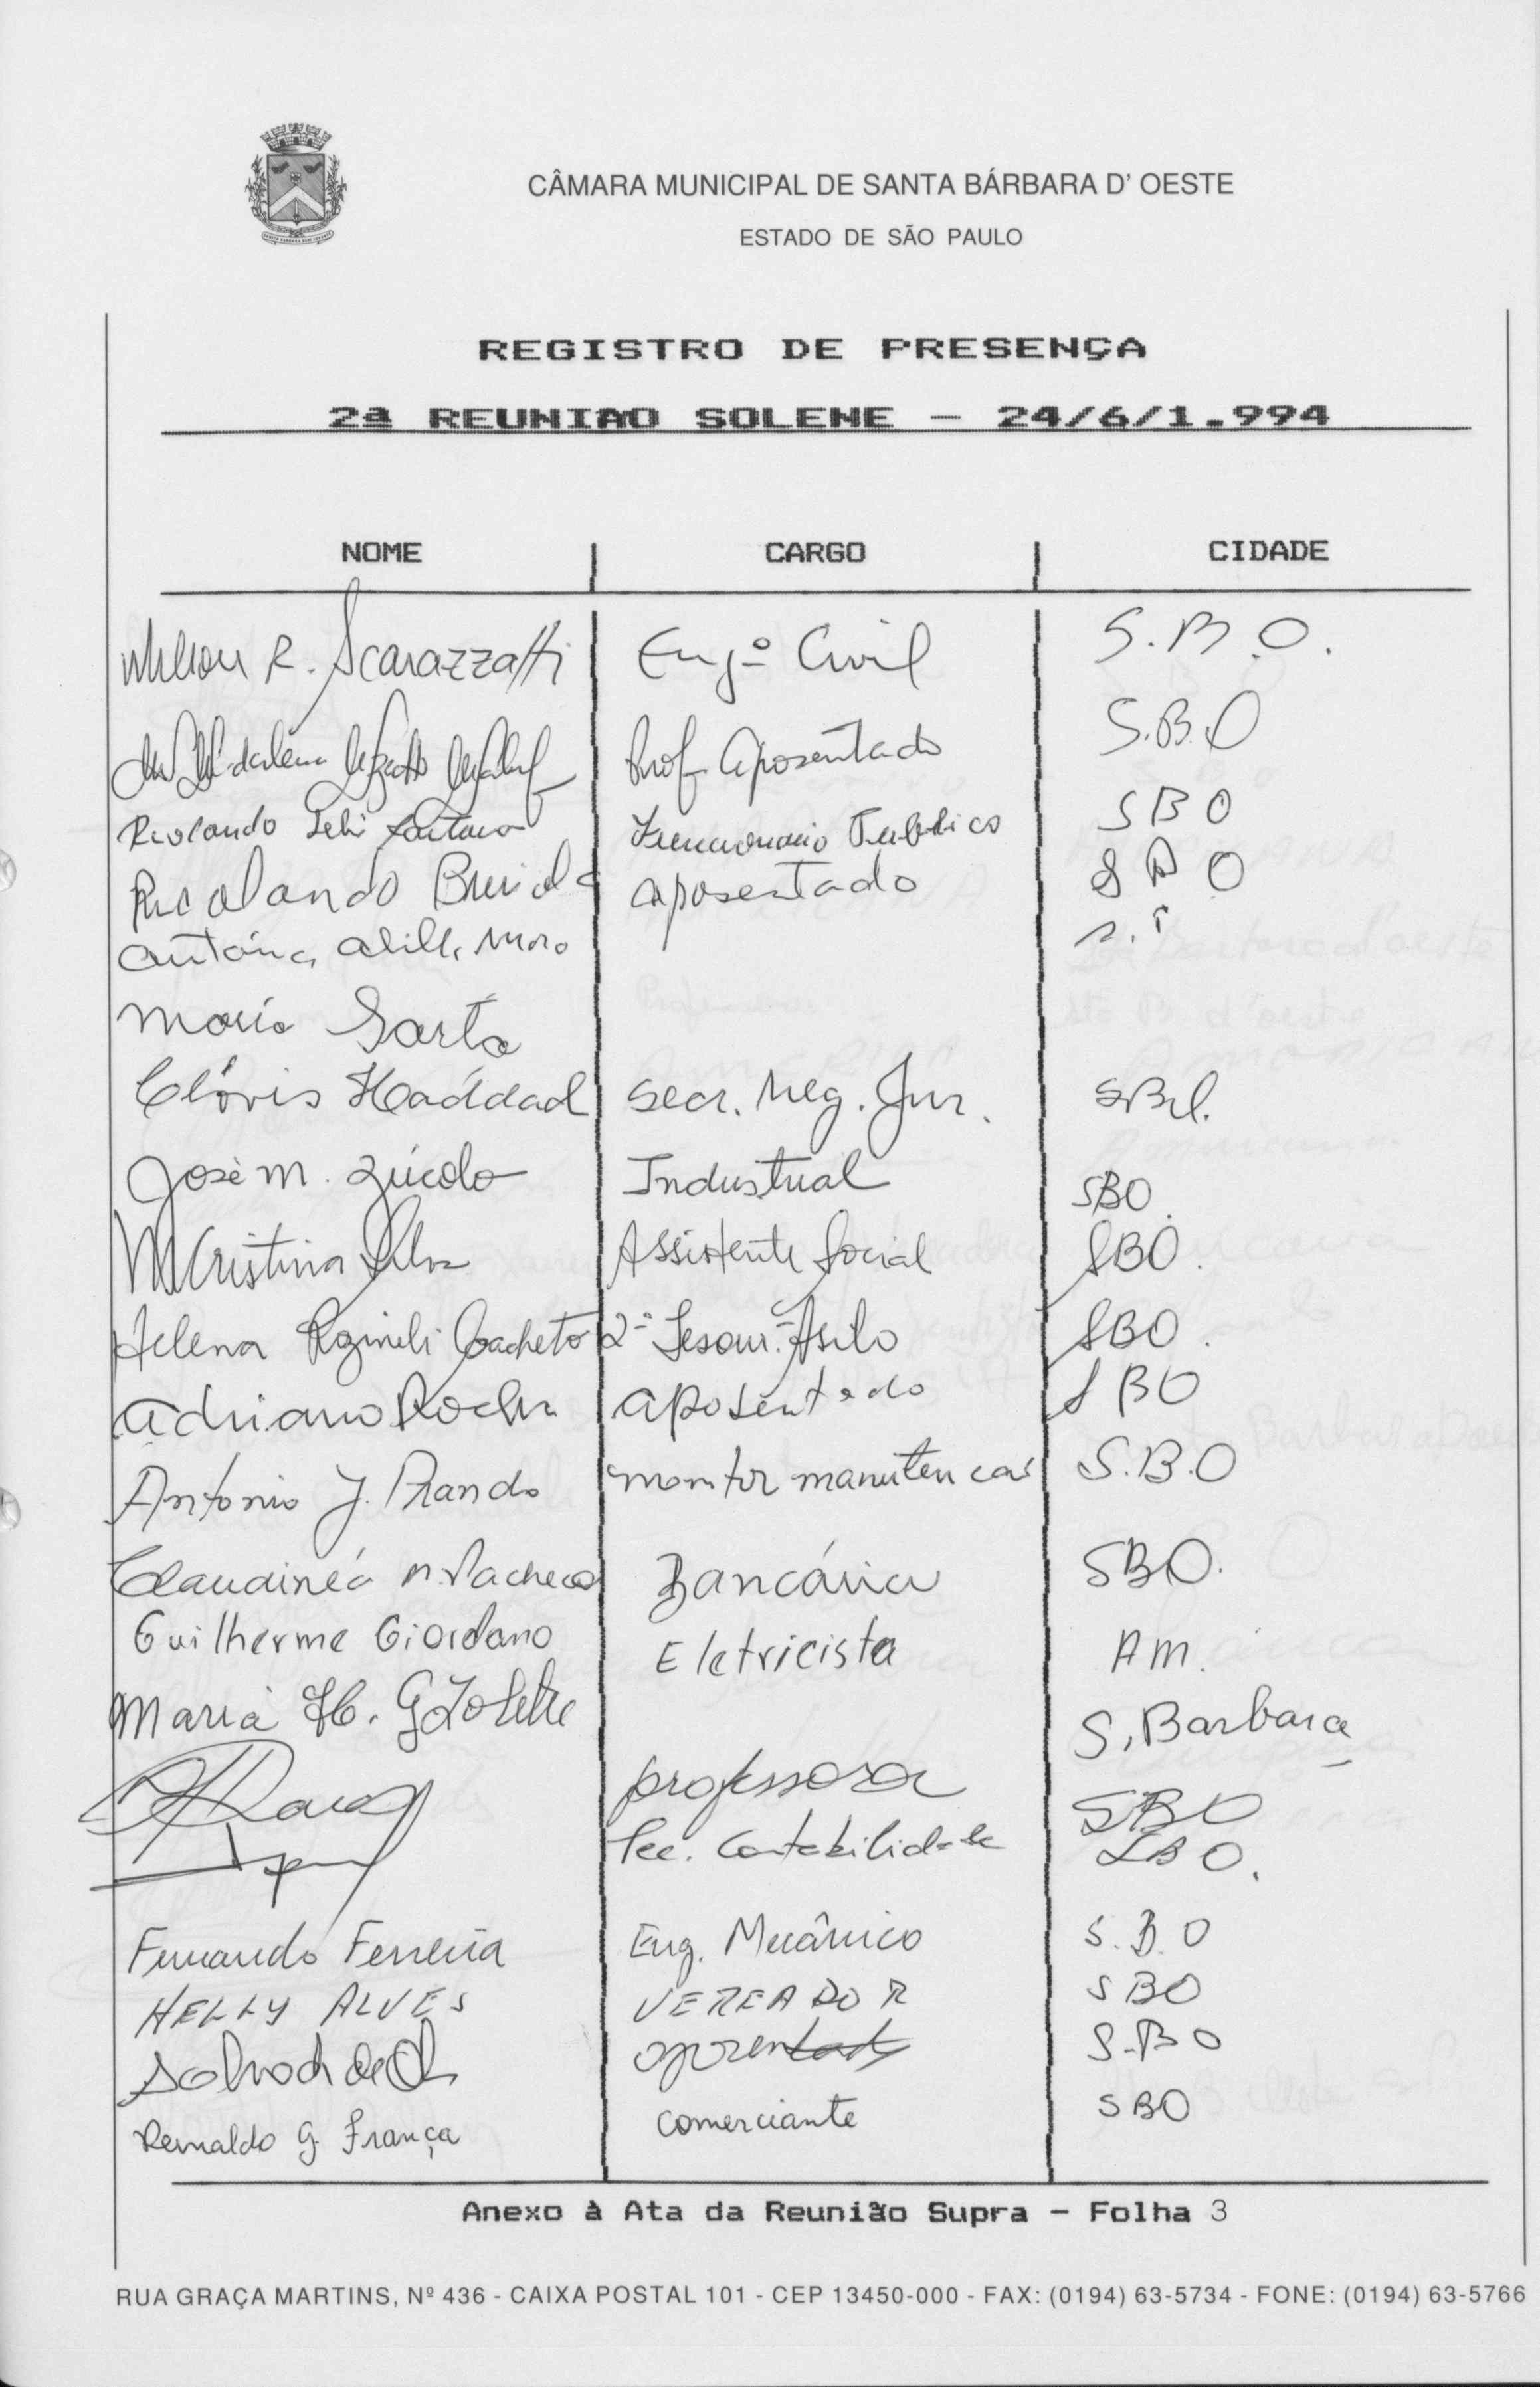 CÂMARA MUNICIPAL DE SANTA BÁRBARA D' OESTE
ESTADO DE SÃO PAULO
REGISTRO DE PRESENÇA
2ª REUNIAO SOLENE - 24/6/1.994
NOME CARGO CIDADE
R. Scarazzatti Engº Civil S.B.O.
Prof aposentado S.B.O
Funcionario Publico SBO
Brid aposentado SBO
Maria Sarto
Clóvis Haddad Secr. Neg. Jur.
José M. Zúcolo Industrial SBO.
M Cristina Silva Assistente Social SBO.
Helena 2ª Tesour. Asilo SBO.
Adriano Rocha aposentado SBO
Antonio J. Prando monitor manutencao S.B.O
Claudinéa M. Pacheco Bancária SBO.
Guilherme Giordano Eletricista AM.
Maria H. S. Barbara
professora SBO
Tec. Contabilidade SBO.
Fernando Ferreira Eng. Mecânico S.B.O
HELLY ALVES VEREADOR SBO
aposentado S.BO
Reinaldo G. França comerciante SBO
Anexo à Ata da Reunião Supra - Folha 3
RUA GRAÇA MARTINS, Nº 436 - CAIXA POSTAL 101 - CEP 13450-000 - FAX: (0194) 63-5734 - FONE: (0194) 63-5766